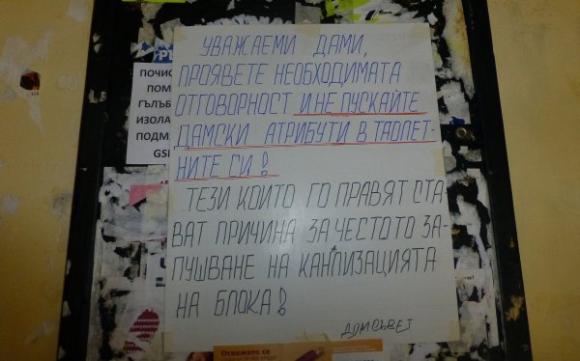 УВАЖАЕМИ ДАМИ,
ПРОЯВЕТЕ НЕОБХОДИМАТА
ОТГОВОРНОСТ И НЕ ПУСКАЙТЕ
ДАМСКИ АТРИБУТИ В ТАОЛЕТ-
НИТЕ СИ!
ТЕЗИ КОИТО ГО ПРАВЯТ СТА-
ВАТ ПРИЧИНА ЗА ЧЕСТОТО ЗА-
ПУШВАНЕ НА КАНЛИЗАЦИЯТА
НА БЛОКА!
ДОМСЪВЕТ
ПОЧИС
ПОМ
ГЪЛЪБ
ИЗОЛА
ПОДМ
GSM